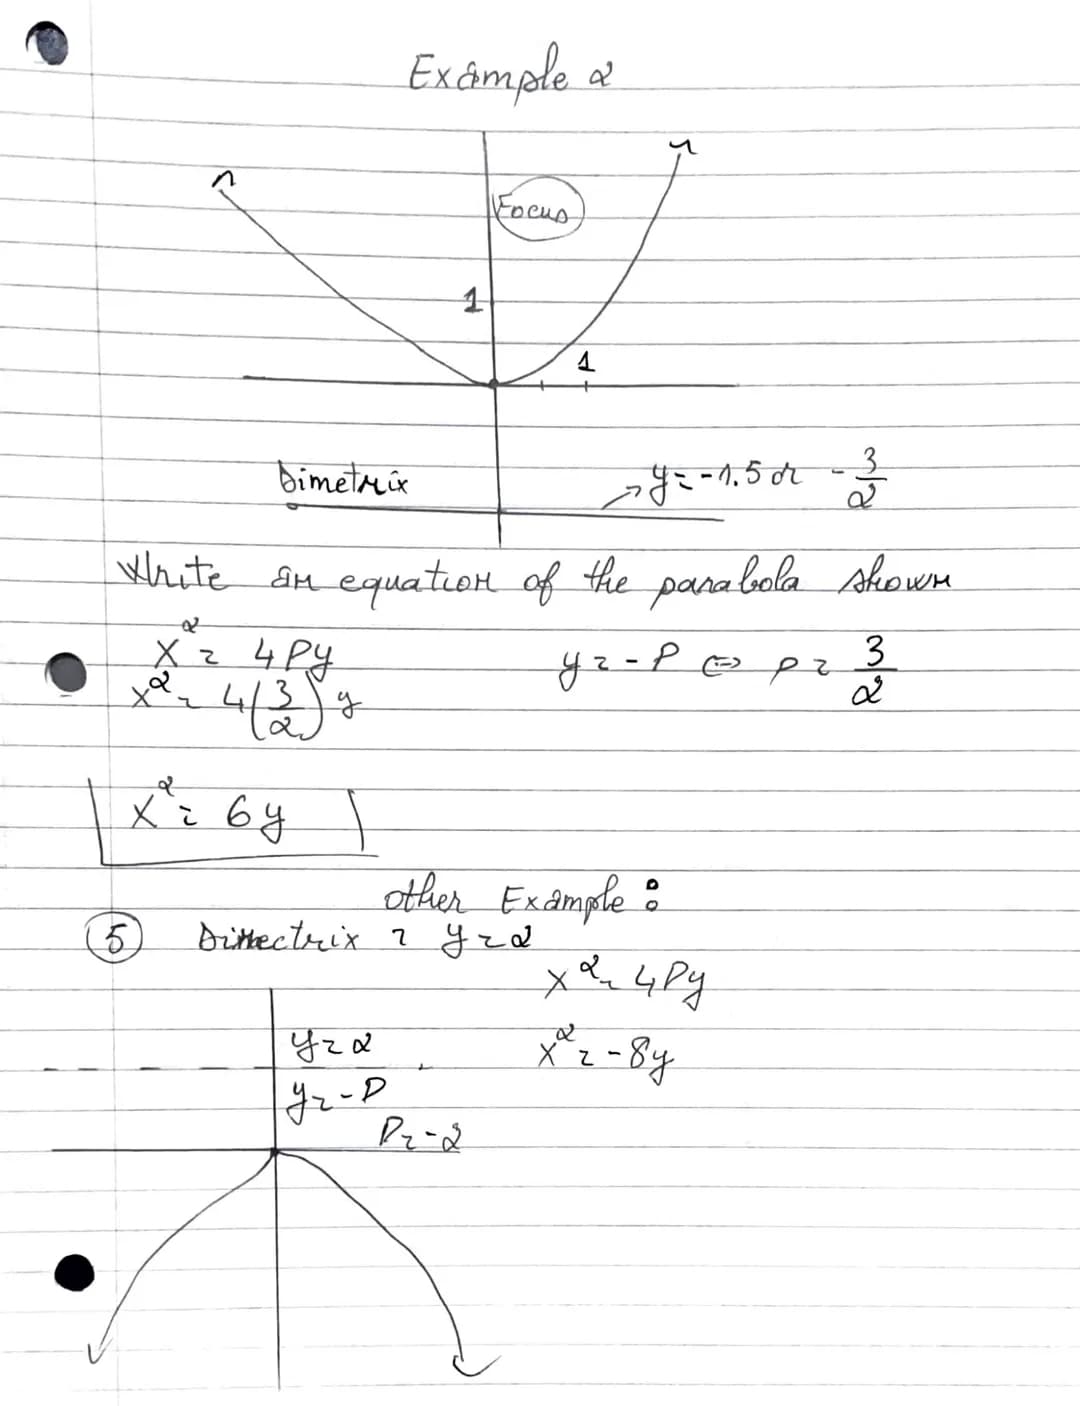 Example 2
Focus
1
1
Dimetrix
y = -1.5 or - 3/2
Write an equation of the parabola shown
x² = 4Py
y = -P ⇔ p = 3/2
x² = 4(3/2)y
x² = 6y
other Example :
5 Dirrectrix = y = 2
x² = 4Py
y = 2
x² = -8y
y = -P
P = -2